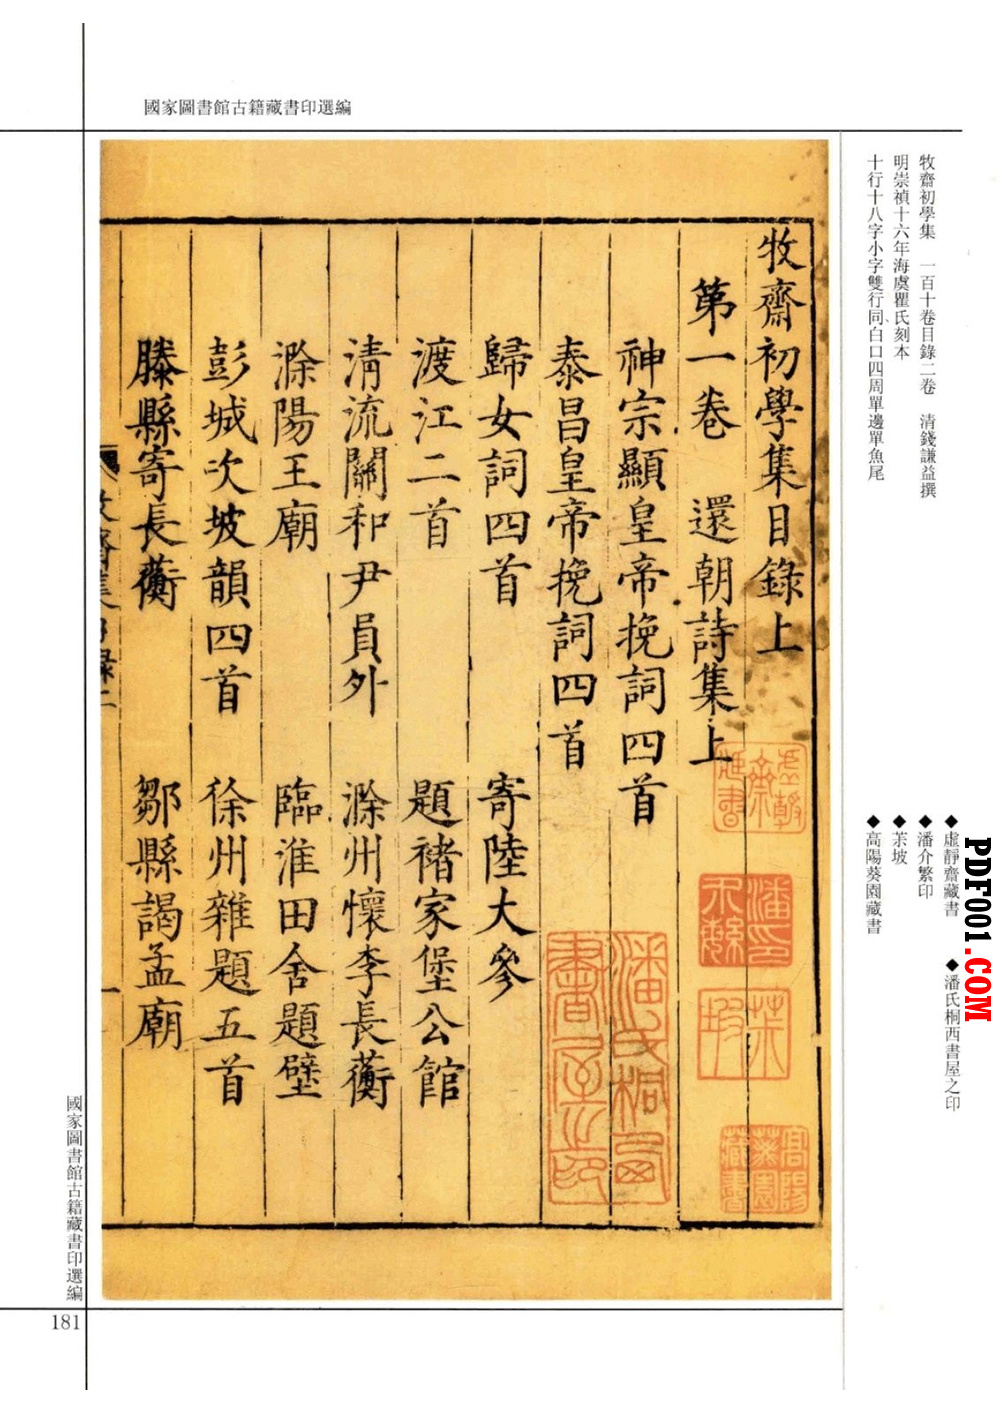 國家圖書館古籍藏書印選編
牧齋初學集　一百十卷目錄二卷　清錢謙益撰
明崇禎十六年海虞瞿氏刻本
十行十八字小字雙行同白口四周單邊單魚尾
牧齋初學集目錄上
第一卷　還朝詩集上
神宗顯皇帝挽詞四首
泰昌皇帝挽詞四首
歸女詞四首　寄陸大參
渡江二首　題褚家堡公館
清流關和尹員外　滁州懷李長蘅
滁陽王廟　臨淮田舍題壁
彭城次坡韻四首　徐州雜題五首
滕縣寄長蘅　鄒縣謁孟廟
一
◆虛靜齋藏書　◆潘氏桐西書屋之印
◆潘介繁印
◆茮坡
◆高陽葵園藏書
虛靜齋藏書
潘介繁印
茮坡
高陽葵園藏書
潘氏桐西書屋之印
PDF001.COM
國家圖書館古籍藏書印選編
181